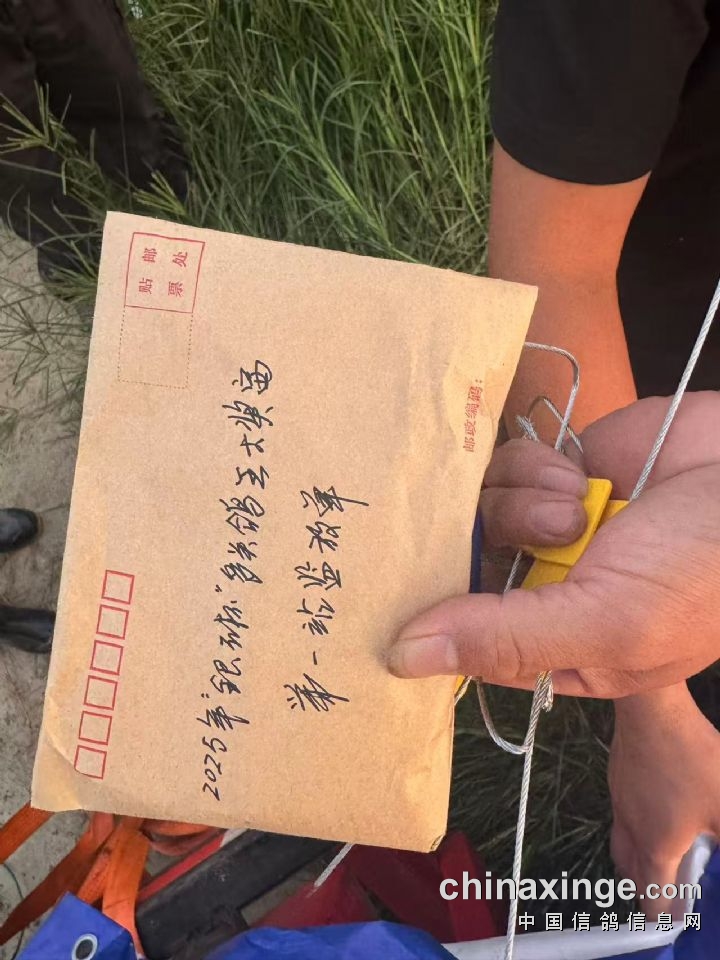 贴 邮
票 处
2025年"银球杯"多关鸽王大奖赛
第一站监放单
邮政编码：
chinaxinge.com
中国信鸽信息网